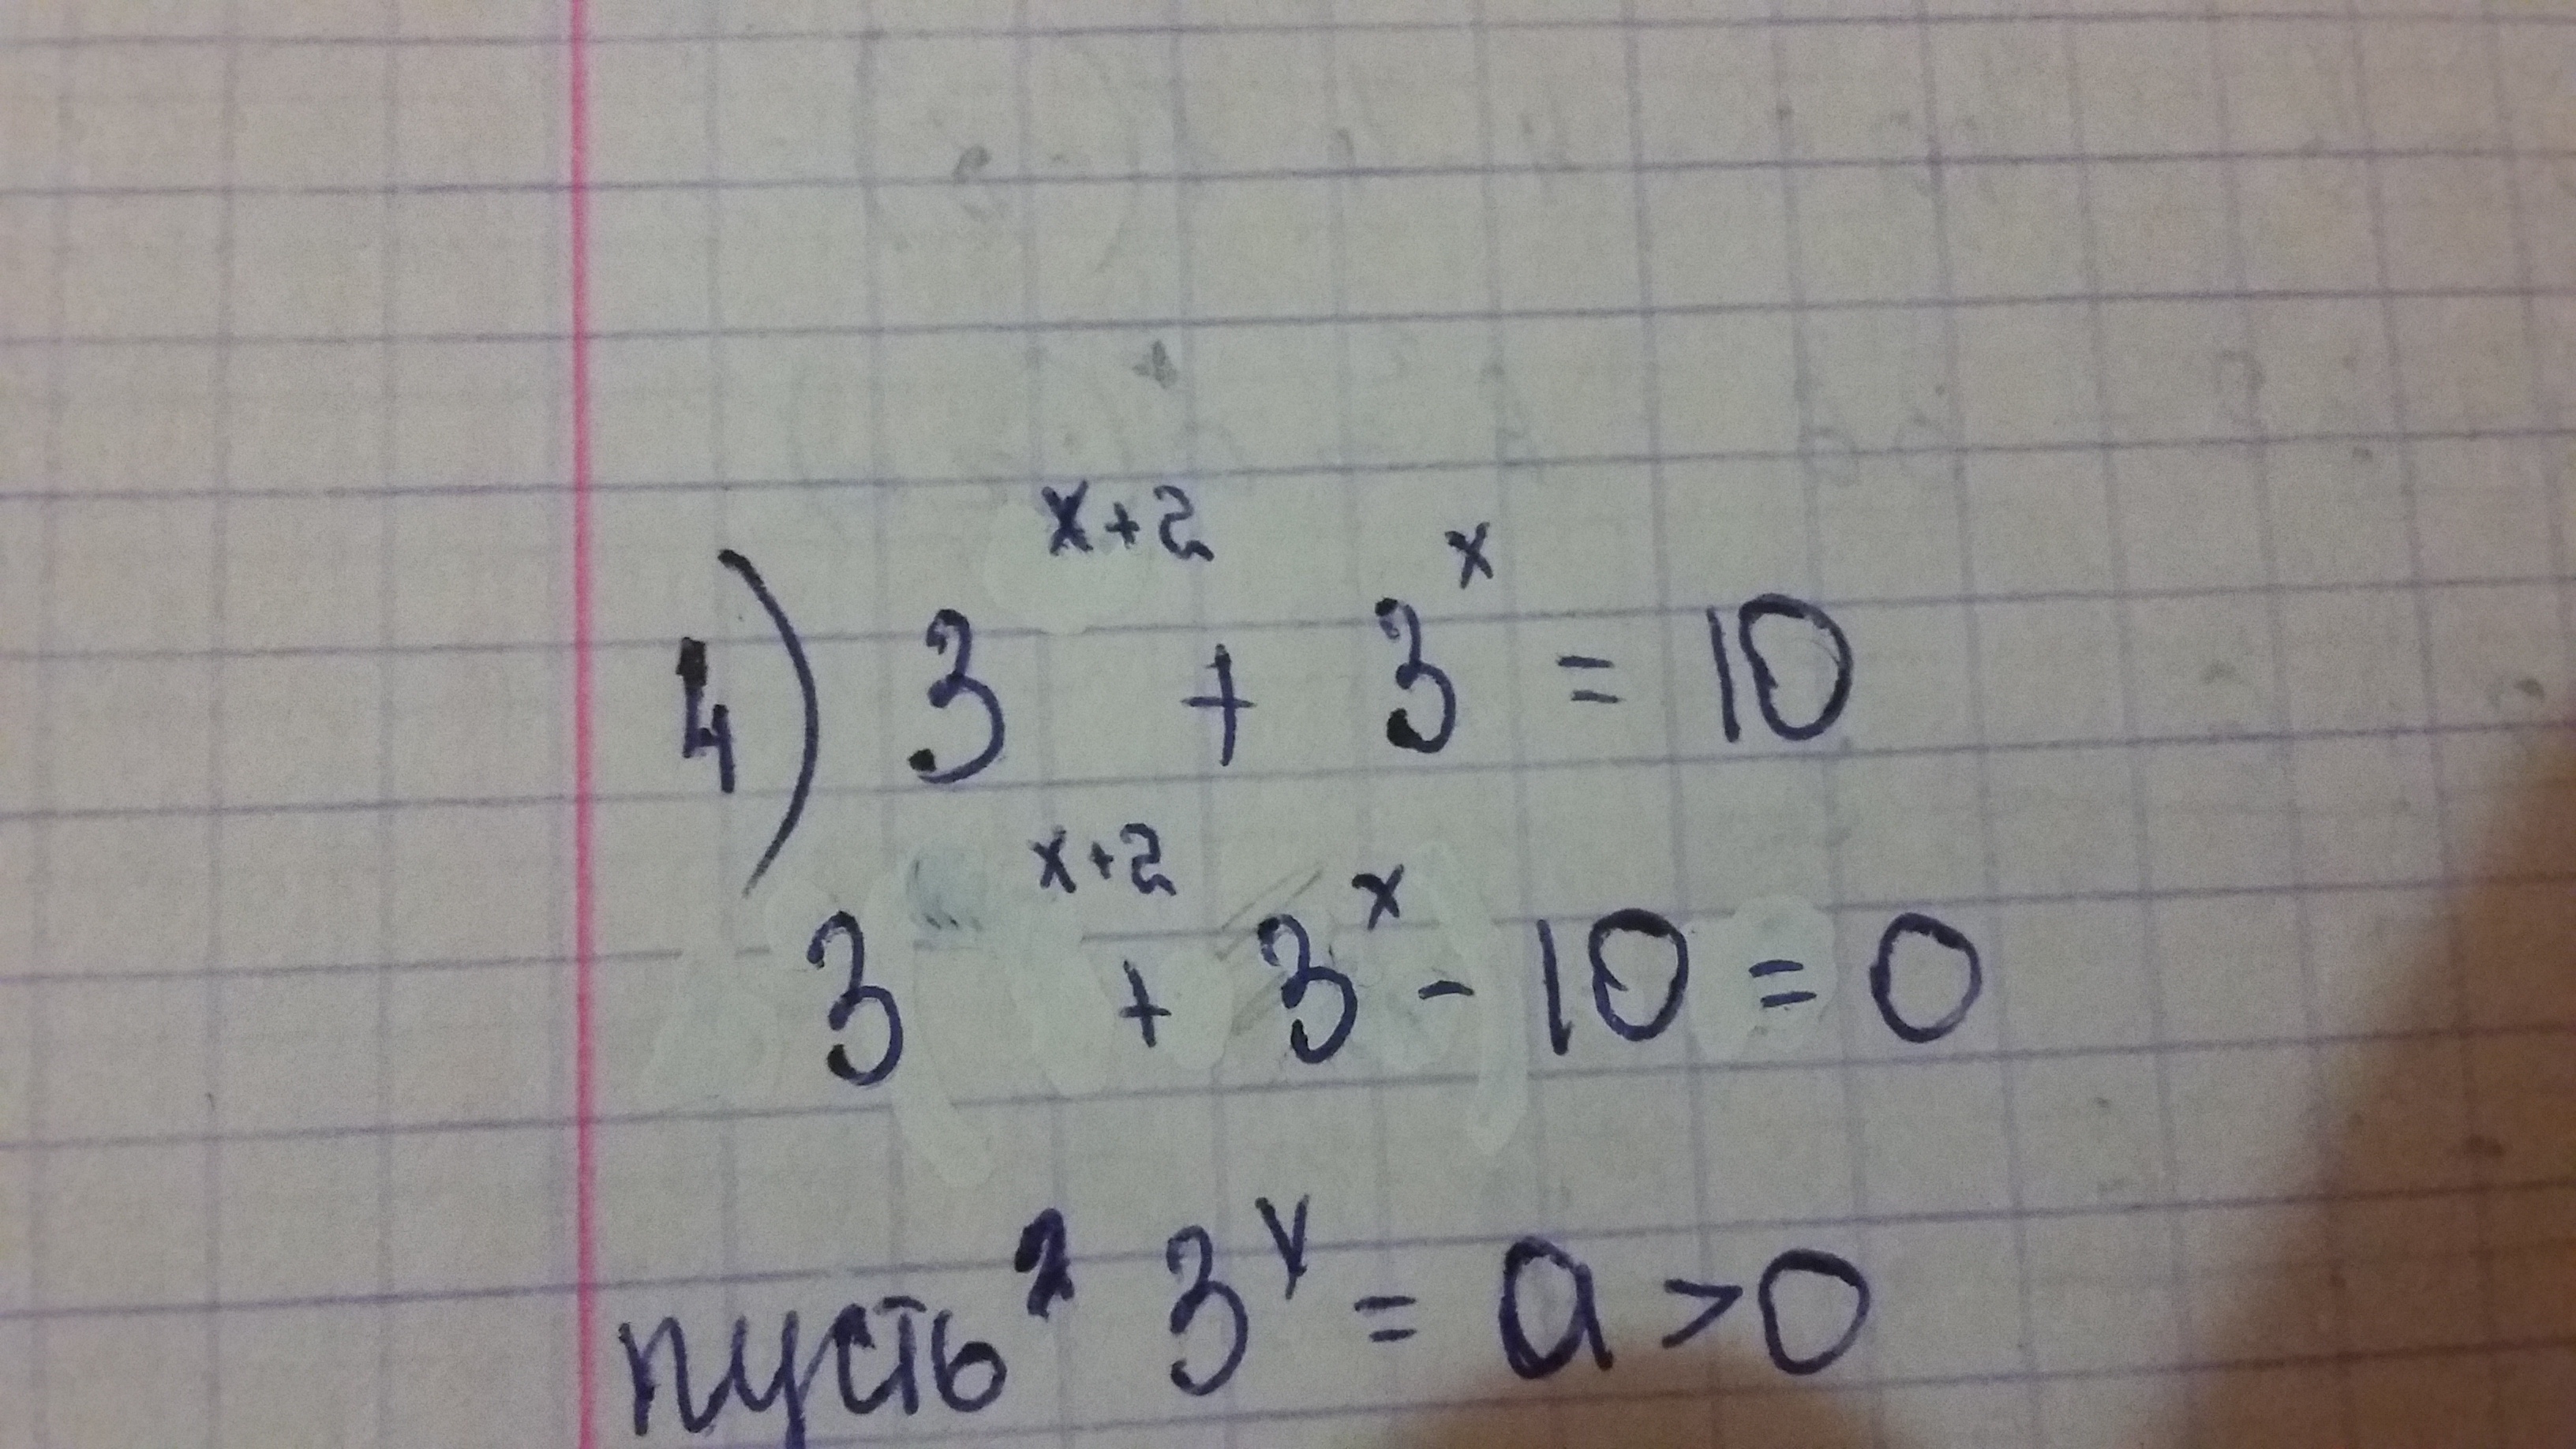 4) 3^{x+2} + 3^x = 10
3^{x+2} + 3^x - 10 = 0
пусть 3^x = a > 0